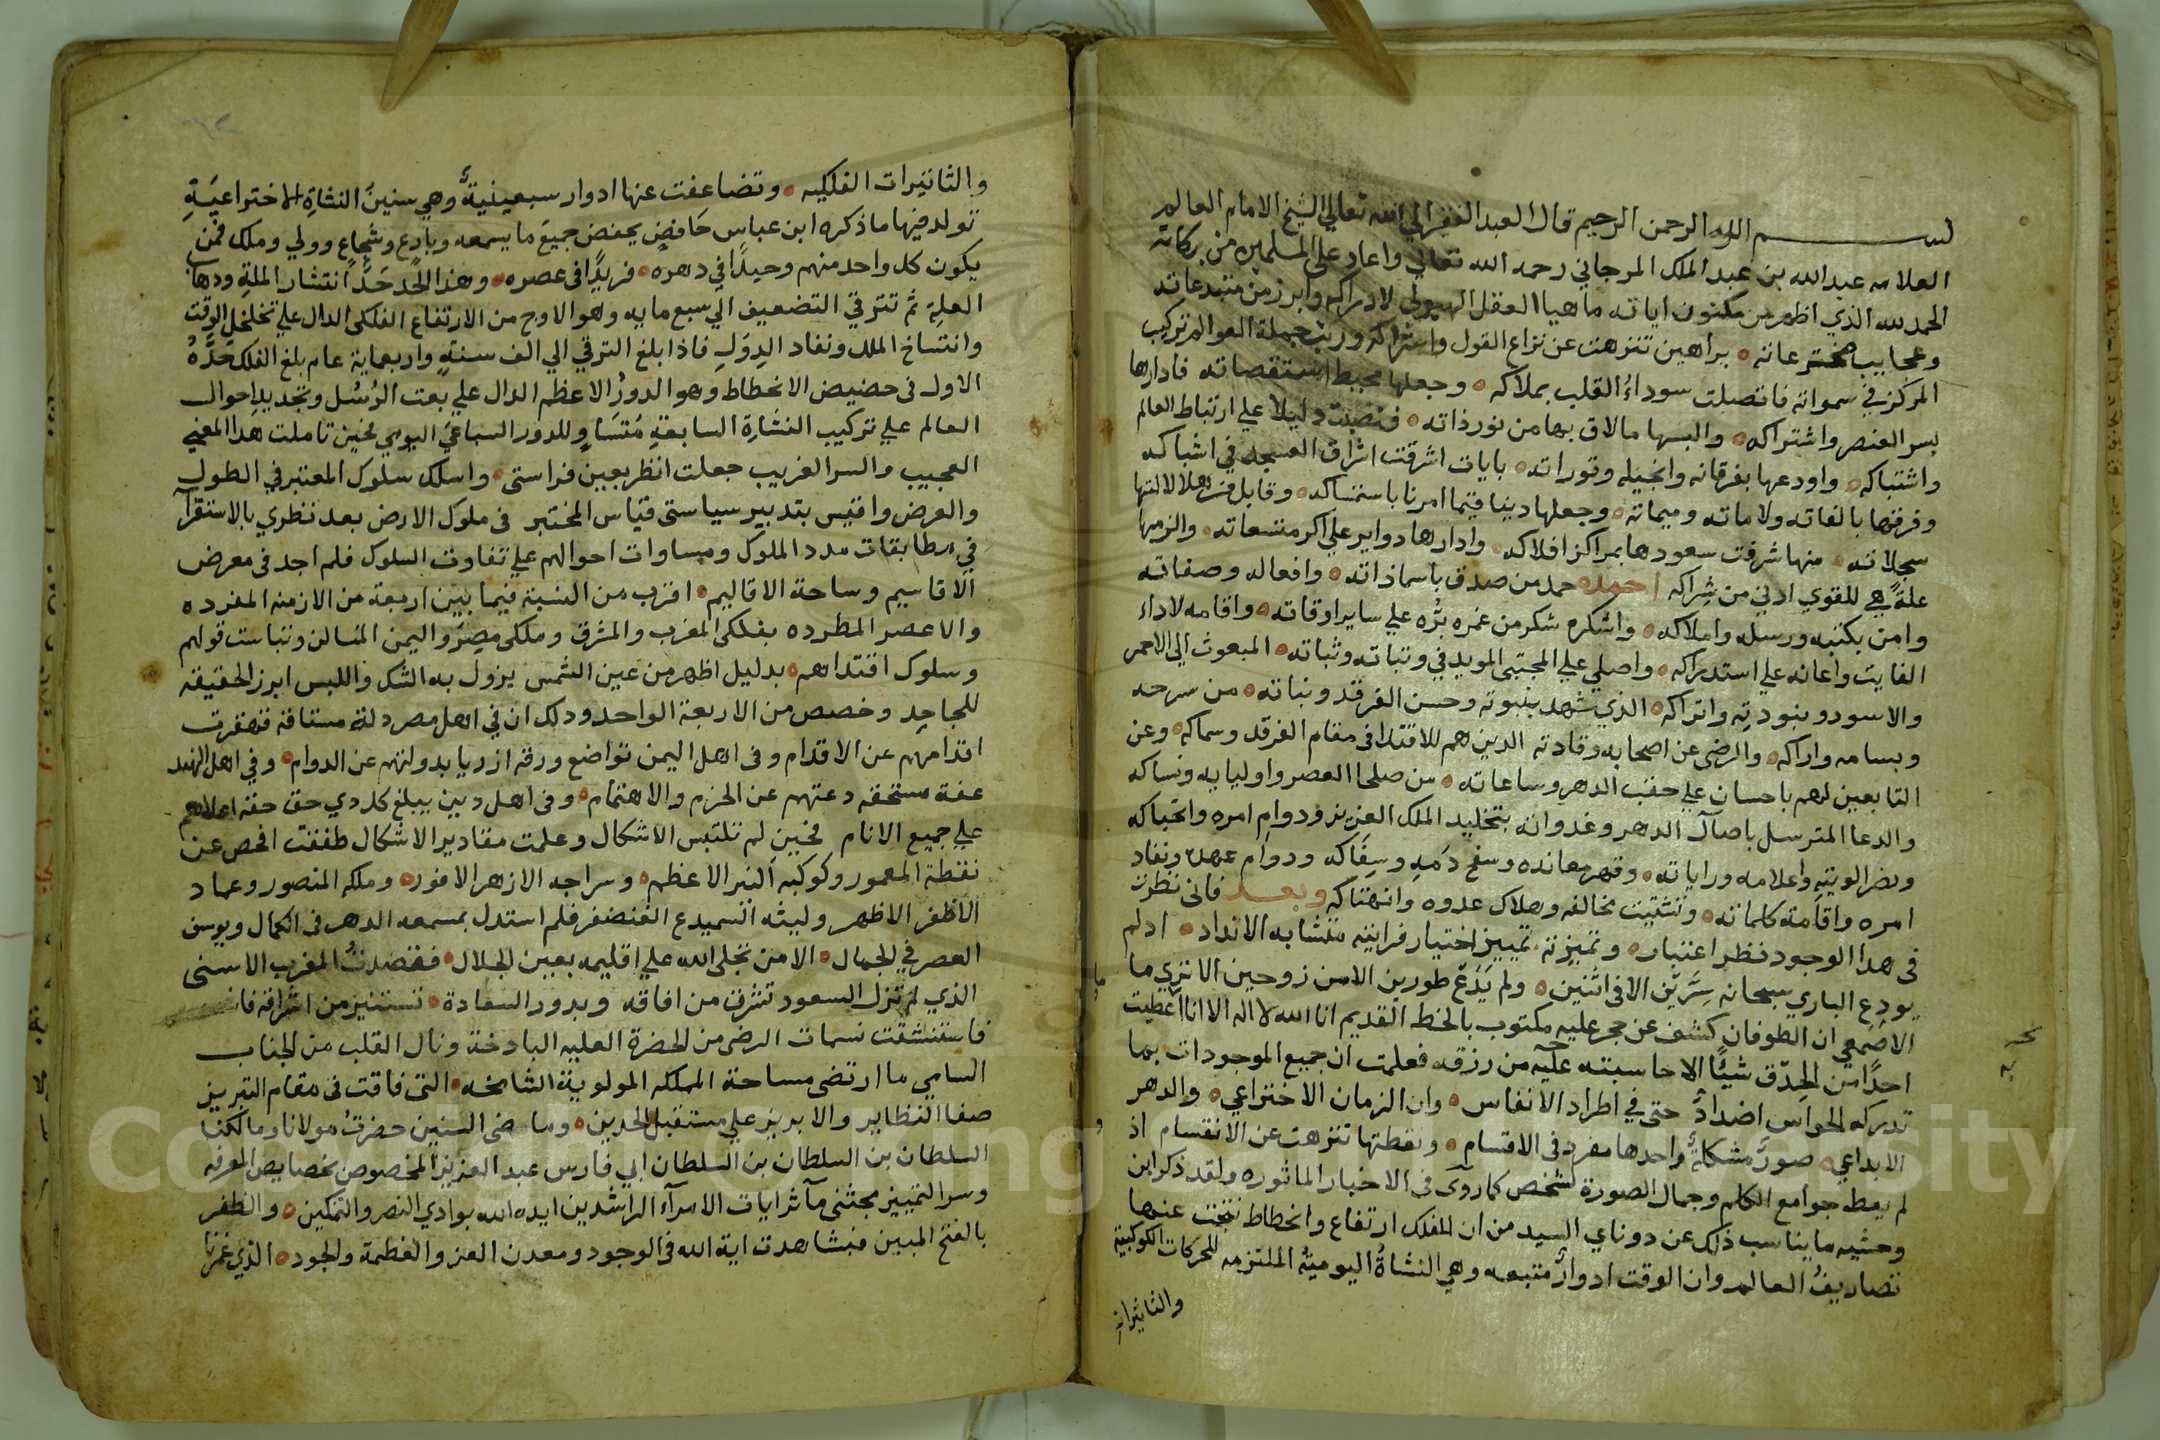 بســـــــم الله الرحمن الرحيم قال العبد الفقير الي الله تعالي الشيخ الامام العالم
العلامه عبدالله بن عبد الملك المرجاني رحمه الله تعالي واعاد علي المسلمين من بركاته
الحمد لله الذي اظهر من مكنون اياته ماهيا العقل الهيولي لادراكه وابرز من مبتدعاته
وعجايب مخترعاته براهين تنزهت عن نزاع القول واشراكه ورتب جملة العوالم تركيب
المركز في سمواته فاتصلت سوداء القلب بملاكه وجعلها محيط استقصاته فادارها
بسر العنصر واشتراكه والبسها مالاق بها من نور ذاته فنصبت دليلا علي ارتباط العالم
واشتباكه واودعها بفرقانه وانجيله وتوراته بايات اشرقت اشراق العسجد في اشباكه
وفرقها بالفاته ولاماته وميماته وجعلها دينا قيما امرنا باستمساكه وقابل
سجلاته منها شرقت سعودها بمراكز افلاكه وادارها دواير علي اكر متسعاته والزمها
علة هي للقوي ادني من شراكه احمده حمد من صدق باسماذاته وافعاله وصفاته
وامن بكتبه ورسله واملاكه واشكره شكر من غمره بره علي ساير اوقاته واقامه لاداء
الفايت واعانه علي استدراكه واصلي علي المجتبي المويد في وثباته وثباته المبعوث الي الاحمر
والاسود وبنودته واتراكه الذي شهد بنبوته وحسن الفرقد ونباته من سرحه
وبسامه واراكه والرضي عن اصحابه وقادته الذين هم للاقتدا في مقام الفرقد وسماكه وعن
التابعين لهم باحسان علي حقب الدهر وساعاته من صلحا العصر واوليايه ونساكه
والدعا المترسل باصآل الدهر وغدواته بتخليد الملك العزيز ودوام امره واحتباكه
ونصر الويته واعلامه وراياته وقهر معانده وسفح دمه وسفاكه ودوام عهده ونفاد
امره واقامة كلماته وتشتيت مخالفه وهلاك عدوه وانهتاكه وبعد فاني نظرت
في هذا الوجود نظر اعتبار وتميزته تمييز اختيار فرايته متشابه الانداد ادلم
يودع الباري سبحانه سرين الا في اثنين ولم يدع طورين الا من زوجين الا تري ما
الاصمعي ان الطوفان كشف عن حجر عليه مكتوب بالخط القديم انا الله لا اله الا انا ااعطيت
احدا من الحذق شيئا الا حاسبته عليه من رزقه فعلمت ان جميع الموجودات بما
تدركه الحواس اضداد حتي في اطراد الانفاس وان الزمان الاختراعي والدهر
الابداعي صور مشكاة واحدها مفرد في الاقسام ونقطتها تنزهت عن الانقسام اذ
لم يعط جوامع الكلم وجمال الصورة لشخص كما روي في الاخبار الماثوره ولقد ذكر ابن
وحشيه ما يناسب ذلك عن دوناي السيد من ان للفلك ارتفاع وانحطاط نتجت عنهما
تصاريف العالم وان الوقت ادوار متبعه وهي النشاة اليوميه الملتزمه للحركات الكوكبيه
والتاثيرات
والتاثيرات الفلكيه وتضاعفت عنها ادوار سبعينية وهي سنين النشاة الاختراعية
تولد فيها ما ذكره ابن عباس حافض يحفض جميع ما يسمعه وبارع وشجاع وولي وملك فمن
يكون كل واحد منهم وحيدا في دهره فريدا في عصره وهذا الحد حد انتشار الملة ودهاب
العلة ثم تترقي التضعيف الي سبع مايه وهو الاوج من الارتفاع الفلكي الدال علي تخلخل الوقت
وانتساخ الملل ونفاد الدول فاذا بلغ الترقي الي الف سنة واربعماية عام بلغ الفلك حده
الاول في حضيض الانحطاط وهو الدور الاعظم الدال علي بعت الرسل وتجديد احوال
العالم علي تركيب النشاة السابقة متساو للدور السباعي اليومي فحين تاملت هذا المعني
العجيب والسر الغريب جعلت انظر بعين فراستي واسلك سلوك المعتبر في الطول
والعرض واقيس بتدبير سياستي قياس المختبر في ملوك الارض بعد نظري بالاستقرآ
في مطابقات مدد الملوك ومساوات احوالهم علي تفاوت السلوك فلم اجد في معرض
الاقاسيم وساحة الاقاليم اقرب من النسبة فيما بين اربعة من الازمنه المفرده
والاعصر المطرده بفلكي المغرب والمشرق وملكي مصر واليمن
وسلوك اقتداهم بدليل اظهر من عين الشمس يزول به الشك واللبس ابرز الحقيقه
للجاحد وخصص من الاربعة الواحد ودلك ان في اهل مصر دلة مستاقة فتقهقرت
اقدامهم عن الاقدام وفي اهل اليمن تواضع ورقة ازديا بدولتهم عن الدوام وفي اهل الهند
عفة مستخفه دعتهم عن الحزم والاهتمام وفي اهل دين يبلغ كل دي حق حقه اعلاهم
علي جميع الانام فحين لم تلتبس الاشكال وعلمت مقادير الاشكال طفقت افحص عن
نقطة المعمور وكوكبه النير الاعظم وسراجه الازهر الانور وملكه المنصور وعماد
الاظفر الاظهر وليثه السميدع الغضنفر فلم استدل بمسمعه الدهر في الكمال ويوسف
العصر في الجمال الا من تجلي الله علي اقليمه بعين الجلال فقصدت المغرب الاسنى
الذي لم تزل السعود تشرق من افاقه وبدور السعادة تستنير من اشراقه
فاستنشقت نسمات الرضي من الحضرة العليه البادخة ونال القلب من الجناب
السامي ما ارتضي مساحة المملكه المولوية الشامخه التي فاقت في مقام التبريز
صفا النظاير والابريز علي مستقبل الحدين وماضي السنين حضرت مولانا ومالكنا
السلطان بن السلطان بن السلطان ابي فارس عبد العزيز المخصوص بخصايص المعرفه
وسر التمييز مجتني مآثر ايات الامرآء الراشدين ايده الله بوادي النصر والتمكين والظفر
بالفتح المبين فشاهدت اية الله في الوجود ومعدن العز والعظمة والجود الذي غمرنا
Copyright © King University